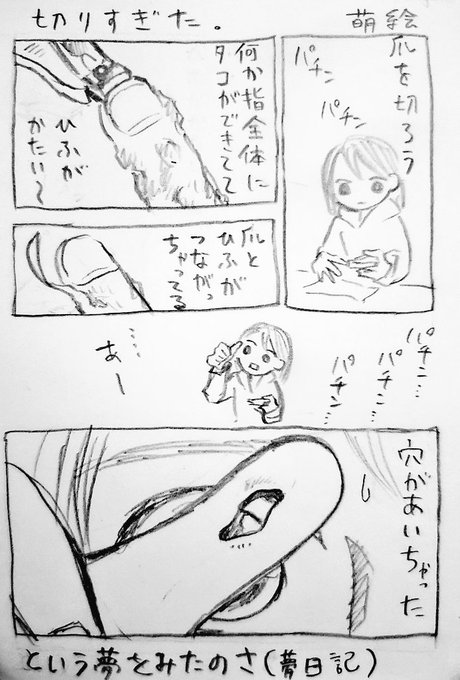 萌絵
切りすぎた。
爪を切ろう
パチン
パチン
何か指全体に
タコができてて
ひふが
かたい〜
爪と
ひふが
つながっ
ちゃってる
パチン…
パチン…
パチン…
…あー
穴があいちゃった
という夢をみたのさ(夢日記)